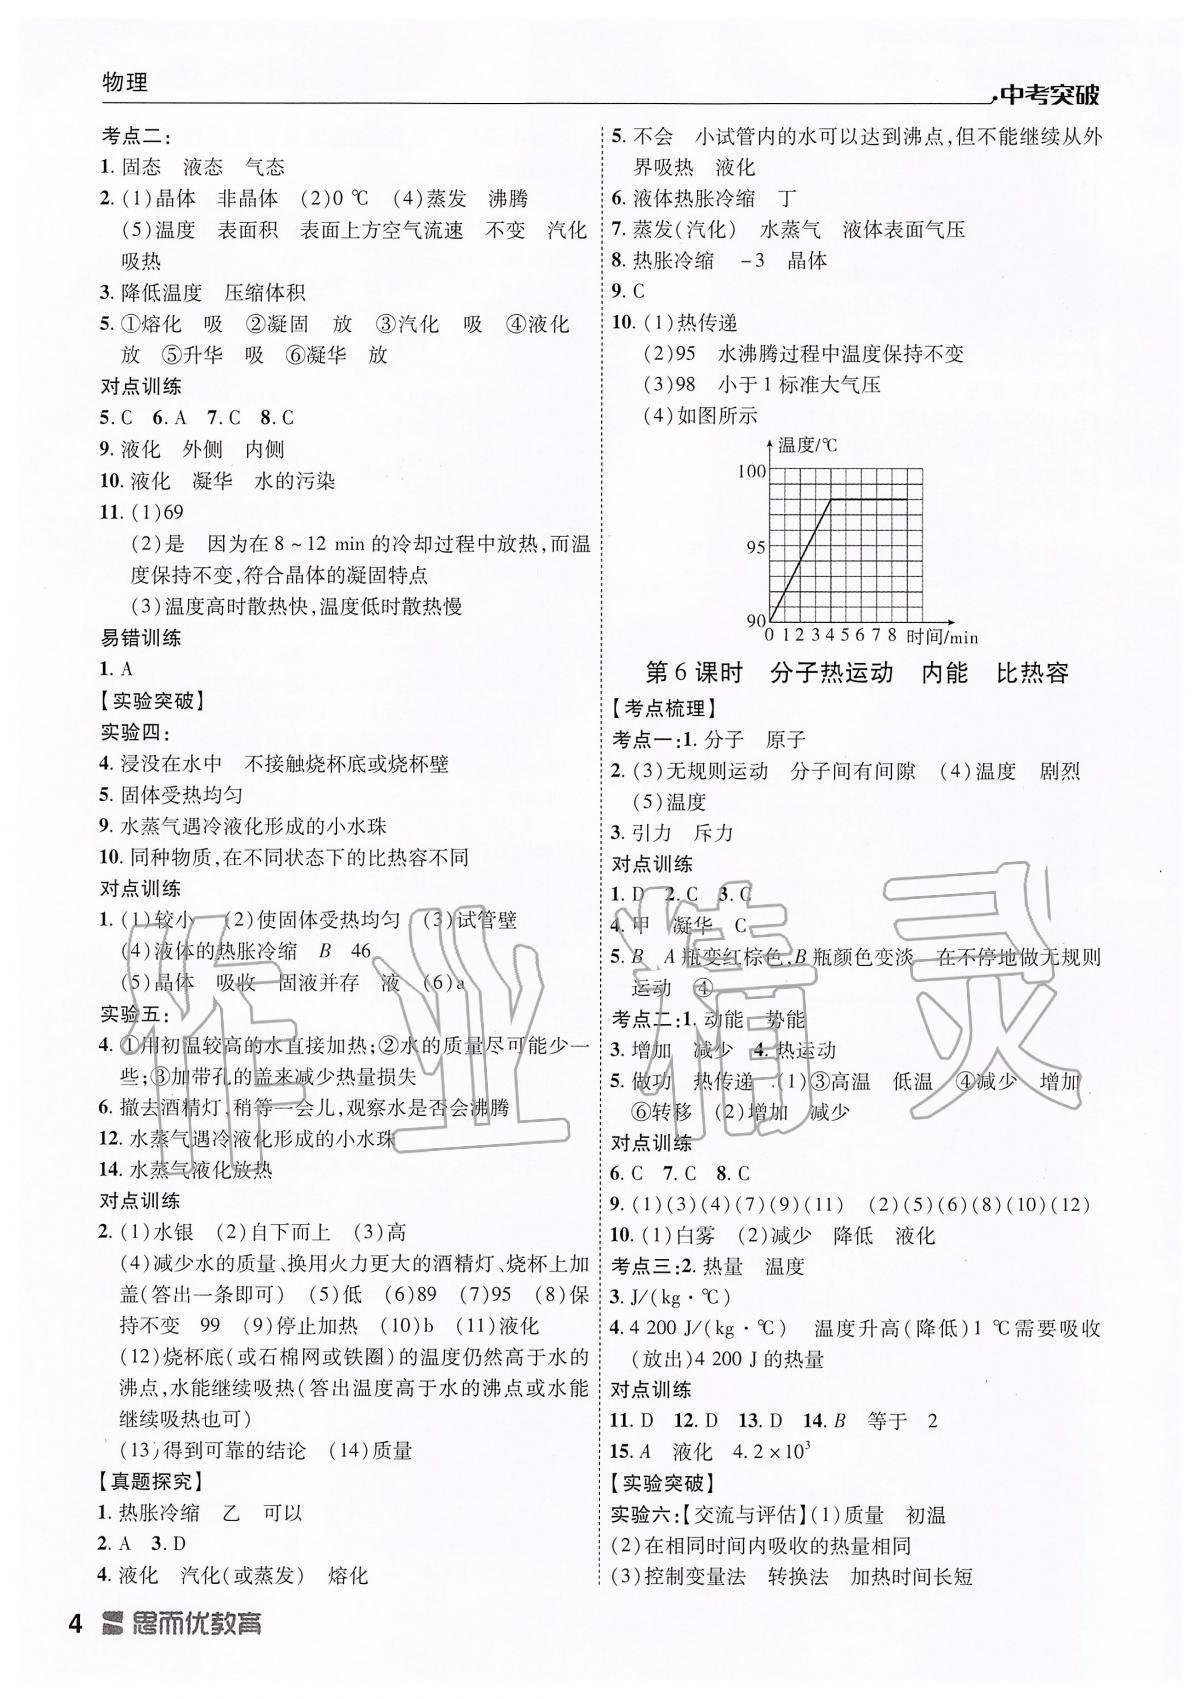 物理
中考突破
考点二:
1. 固态 液态 气态
2. (1)晶体 非晶体 (2)0 ℃ (4)蒸发 沸腾
(5)温度 表面积 表面上方空气流速 不变 汽化
吸热
3. 降低温度 压缩体积
5. ①熔化 吸 ②凝固 放 ③汽化 吸 ④液化
放 ⑤升华 吸 ⑥凝华 放
对点训练
5. C 6. A 7. C 8. C
9. 液化 外侧 内侧
10. 液化 凝华 水的污染
11. (1)69
(2)是 因为在 8 ~ 12 min 的冷却过程中放热,而温
度保持不变,符合晶体的凝固特点
(3)温度高时散热快,温度低时散热慢
易错训练
1. A
【实验突破】
实验四:
4. 浸没在水中 不接触烧杯底或烧杯壁
5. 固体受热均匀
9. 水蒸气遇冷液化形成的小水珠
10. 同种物质,在不同状态下的比热容不同
对点训练
1. (1)较小 (2)使固体受热均匀 (3)试管壁
(4)液体的热胀冷缩 B 46
(5)晶体 吸收 固液并存 液 (6)a
实验五:
4. ①用初温较高的水直接加热;②水的质量尽可能少一
些;③加带孔的盖来减少热量损失
6. 撤去酒精灯,稍等一会儿,观察水是否会沸腾
12. 水蒸气遇冷液化形成的小水珠
14. 水蒸气液化放热
对点训练
2. (1)水银 (2)自下而上 (3)高
(4)减少水的质量、换用火力更大的酒精灯、烧杯上加
盖(答出一条即可) (5)低 (6)89 (7)95 (8)保
持不变 99 (9)停止加热 (10)b (11)液化
(12)烧杯底(或石棉网或铁圈)的温度仍然高于水的
沸点,水能继续吸热(答出温度高于水的沸点或水能
继续吸热也可)
(13)得到可靠的结论 (14)质量
【真题探究】
1. 热胀冷缩 乙 可以
2. A 3. D
4. 液化 汽化(或蒸发) 熔化
5. 不会 小试管内的水可以达到沸点,但不能继续从外
界吸热 液化
6. 液体热胀冷缩 丁
7. 蒸发(汽化) 水蒸气 液体表面气压
8. 热胀冷缩 -3 晶体
9. C
10. (1)热传递
(2)95 水沸腾过程中温度保持不变
(3)98 小于 1 标准大气压
(4)如图所示
温度/℃
100
95
90
0 1 2 3 4 5 6 7 8 时间/min
第 6 课时 分子热运动 内能 比热容
【考点梳理】
考点一:1. 分子 原子
2. (3)无规则运动 分子间有间隙 (4)温度 剧烈
(5)温度
3. 引力 斥力
对点训练
1. D 2. C 3. C
4. 甲 凝华 C
5. B A 瓶变红棕色,B 瓶颜色变淡 在不停地做无规则
运动 ④
考点二:1. 动能 势能
3. 增加 减少 4. 热运动
5. 做功 热传递 (1)③高温 低温 ④减少 增加
⑥转移 (2)增加 减少
对点训练
6. C 7. C 8. C
9. (1)(3)(4)(7)(9)(11) (2)(5)(6)(8)(10)(12)
10. (1)白雾 (2)减少 降低 液化
考点三:2. 热量 温度
3. J/(kg·℃)
4. 4 200 J/(kg·℃) 温度升高(降低)1 ℃需要吸收
(放出)4 200 J 的热量
对点训练
11. D 12. D 13. D 14. B 等于 2
15. A 液化 4. 2 × 10³
【实验突破】
实验六:【交流与评估】(1)质量 初温
(2)在相同时间内吸收的热量相同
(3)控制变量法 转换法 加热时间长短
作业精灵
4 思而优教育